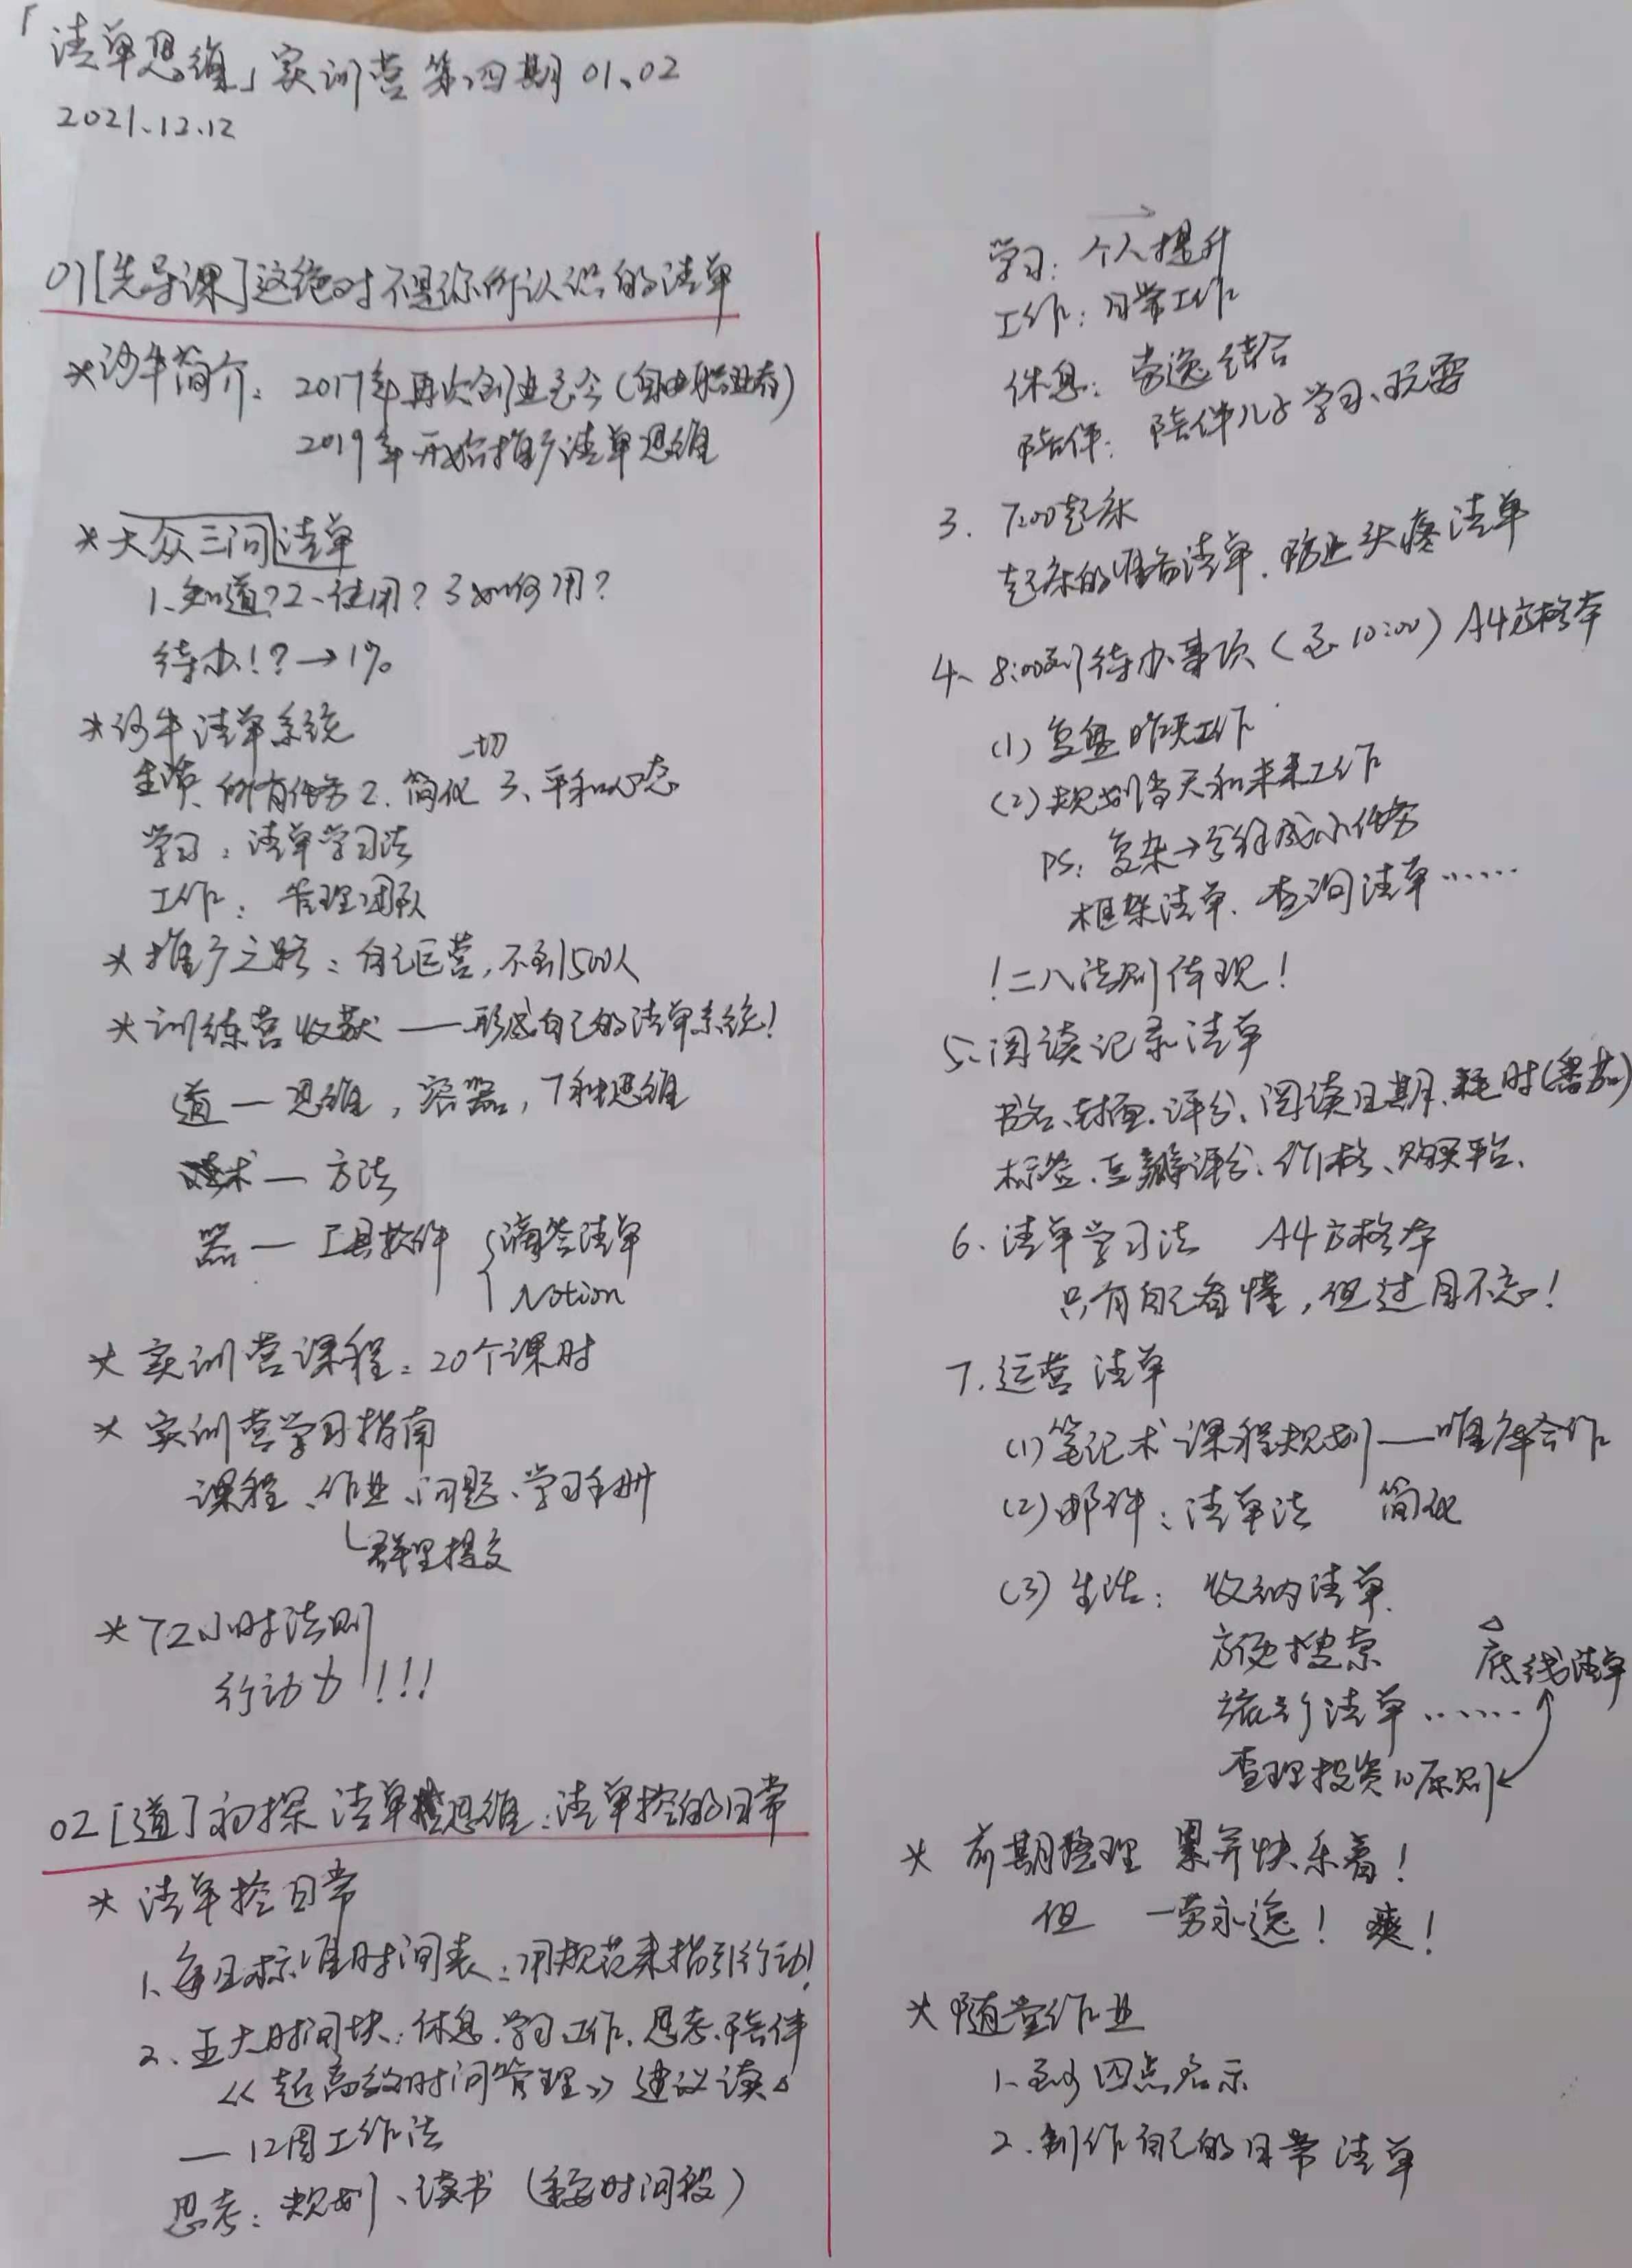 「清单思维」实训营第四期 01、02
2021.12.12
01[先导课]这绝对不是你所认识的清单
*沙牛简介：2017年再次创业至今(自由职业者)
2019年开始推广清单思维
*大众三问清单
1、知道?2、使用?3如何用?
待办!?→1%
*沙牛清单系统
一切
生活、所有任务 2.简化 3、平和心态
学习：清单学习法
工作：管理团队
*推广之路：自己运营,不到1500人
*训练营收获——形成自己的清单系统!
道—思维,容器,7种思维
术—方法
器—工具软件 {滴答清单
Notion
*实训营课程：20个课时
*实训营学习指南
课程、作业、问题、学习手册
群里提交
*72小时法则
行动力!!!
02[道]初探清单思维：清单控的日常
*清单控日常
1、每日标准时间表：用规范来指引行动!
2、五大时间块：休息.学习.工作.思考.陪伴
《超高效时间管理》建议读
—12周工作法
思考：规划、读书(重要时间段)
学习：个人提升
工作：日常工作
休息：劳逸结合
陪伴：陪伴儿子学习、玩耍
3. 7:00起床
起床的准备清单.防止头疼清单
4、8:00列待办事项(至10:00)A4方格本
(1)复盘昨天工作
(2)规划当天和未来工作
PS：复杂→分解成小任务
框架清单.查询清单……
!二八法则体现!
5、阅读记录清单
书名、封面.评分、阅读日期、耗时(番茄)
标签.豆瓣评分、价格、购买平台、
6、清单学习法 A4方格本
只有自己看懂,但过目不忘!
7.运营清单
(1)笔记术课程规划——唯库合作
(2)邮件：清单法 简化
(3)生活：收纳清单.
方便搜索
底线清单
旅行清单……
查理投资10原则
*前期整理 累并快乐着!
但 一劳永逸! 爽!
*随堂作业
1、至少四点启示
2.制作自己的日常清单